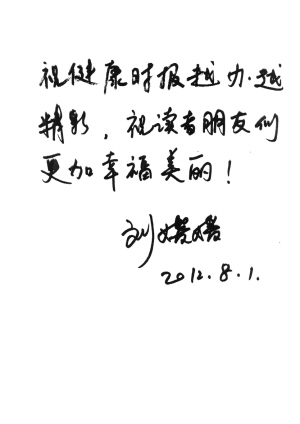 祝健康时报越办越
精彩，祝读者朋友们
更加幸福美丽！
刘
2012.8.1.